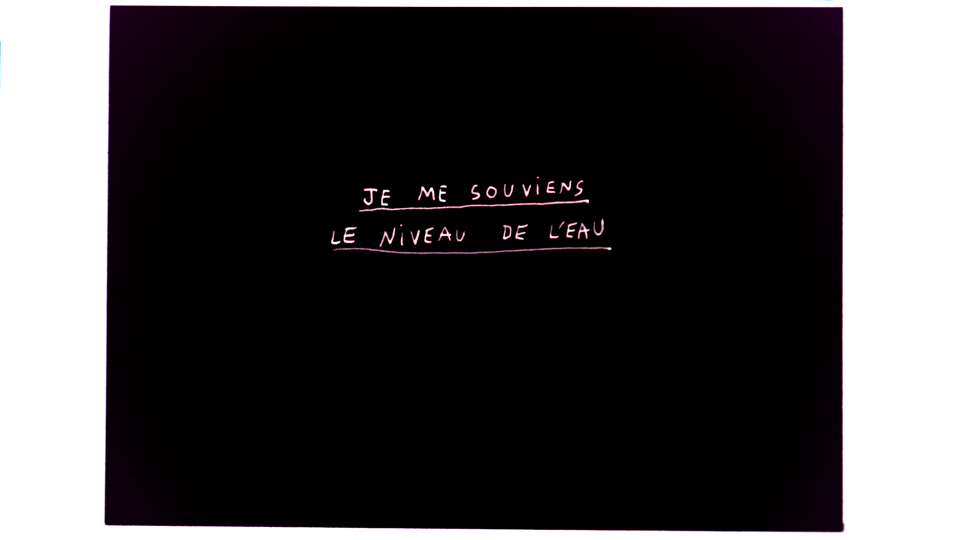 JE ME SOUViENS
LE NiVEAU DE L'EAU